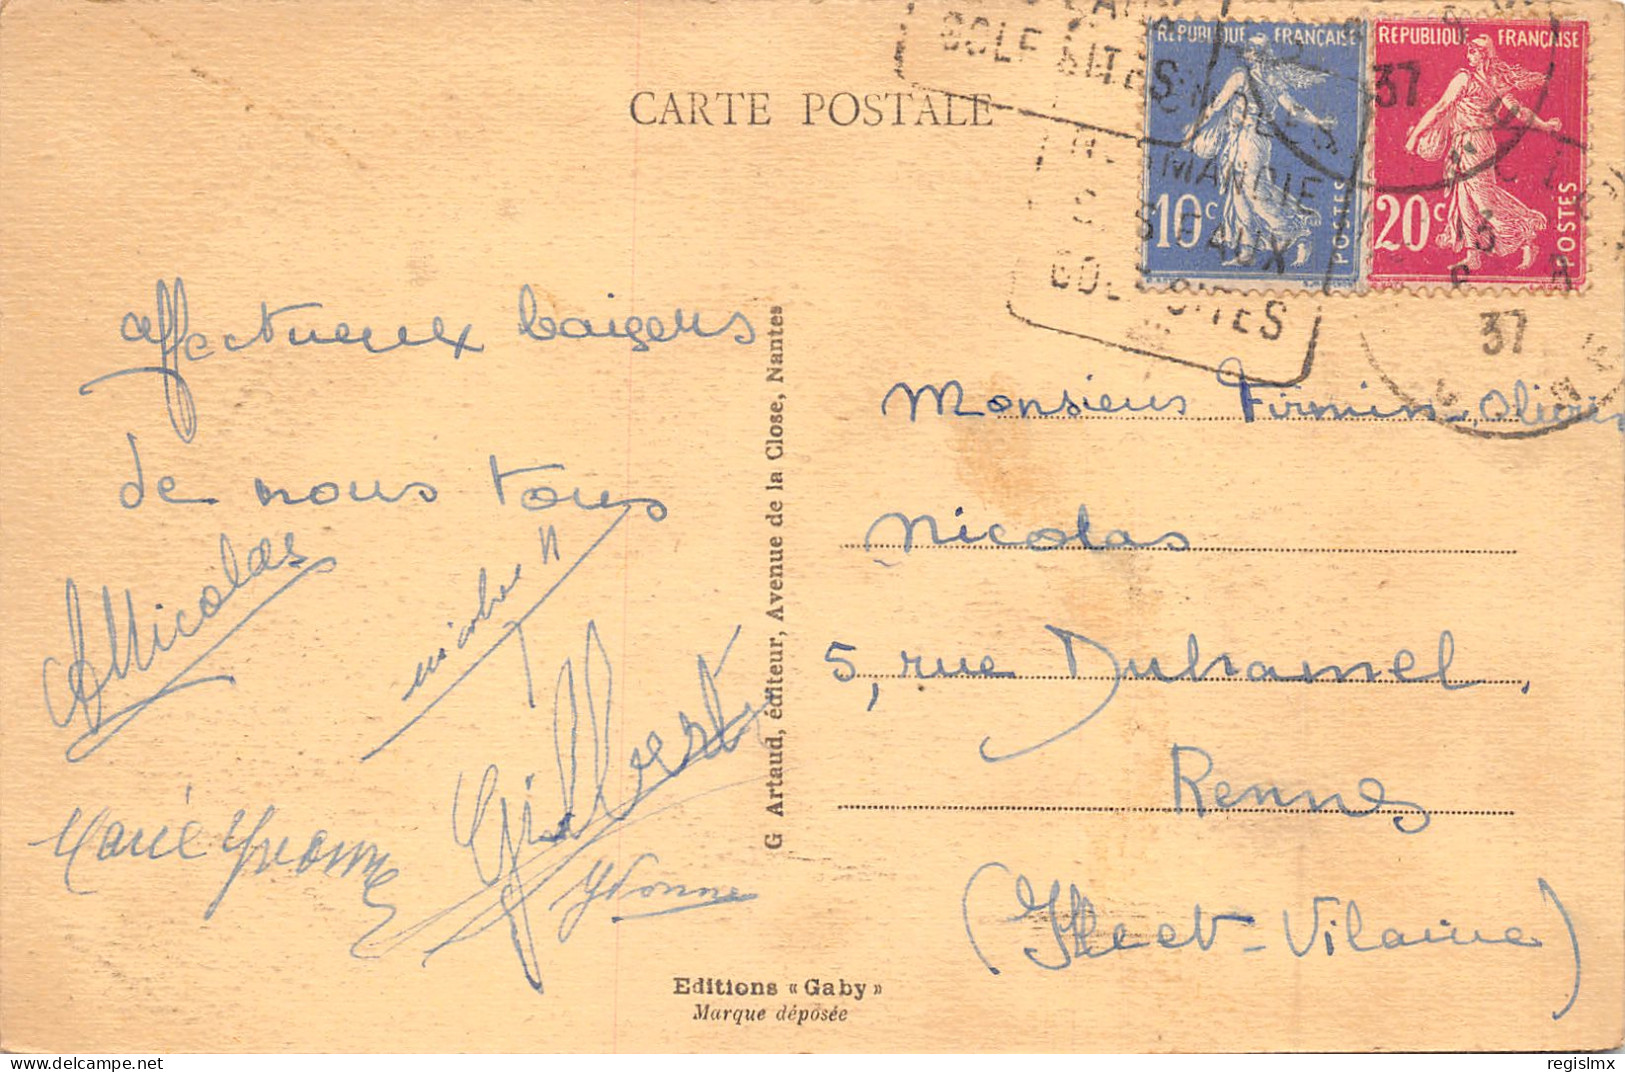 CARTE POSTALE
REPUBLIQUE FRANÇAISE
10c POSTES
REPUBLIQUE FRANÇAISE
20c POSTES
37
GOLF SITES
13
37
affectueux baisers
de nous tous
A Nicolas
nicolas
Gilbert
Marie Yvonne
Yvonne
G Artaud, éditeur, Avenue de la Close, Nantes
Monsieur Firmin Olivier
Nicolas
5, rue Duhamel,
Rennes
(Ille et-Vilaine)
Editions « Gaby »
Marque déposée
delcampe.net
regislmx